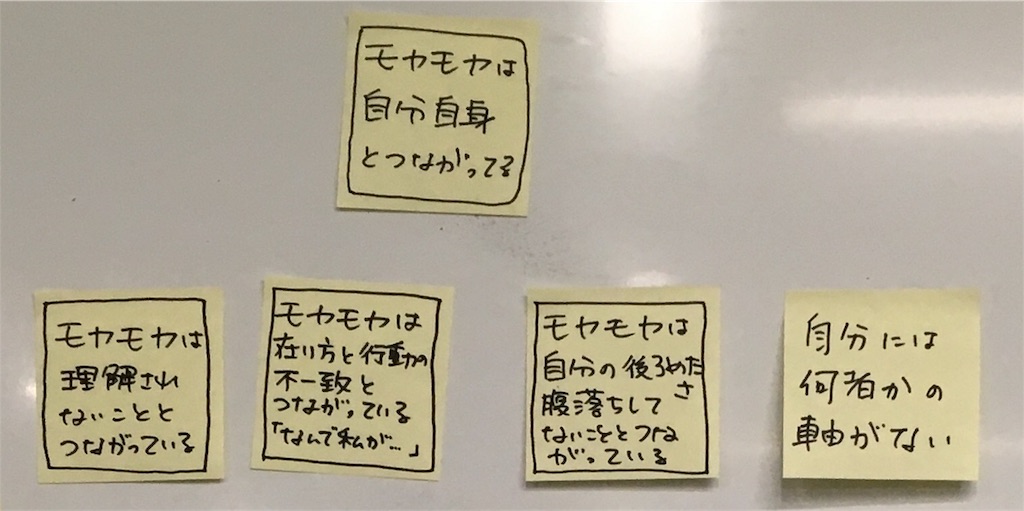 モヤモヤは
自分自身
とつながってる
モヤモヤは
理解され
ないことと
つながっている
モヤモヤは
在り方と行動の
不一致と
つながっている
「なんで私が…」
モヤモヤは
自分の後ろめたさ
腹落ちして
ないこととつな
がっている
自分には
何者かの
軸がない